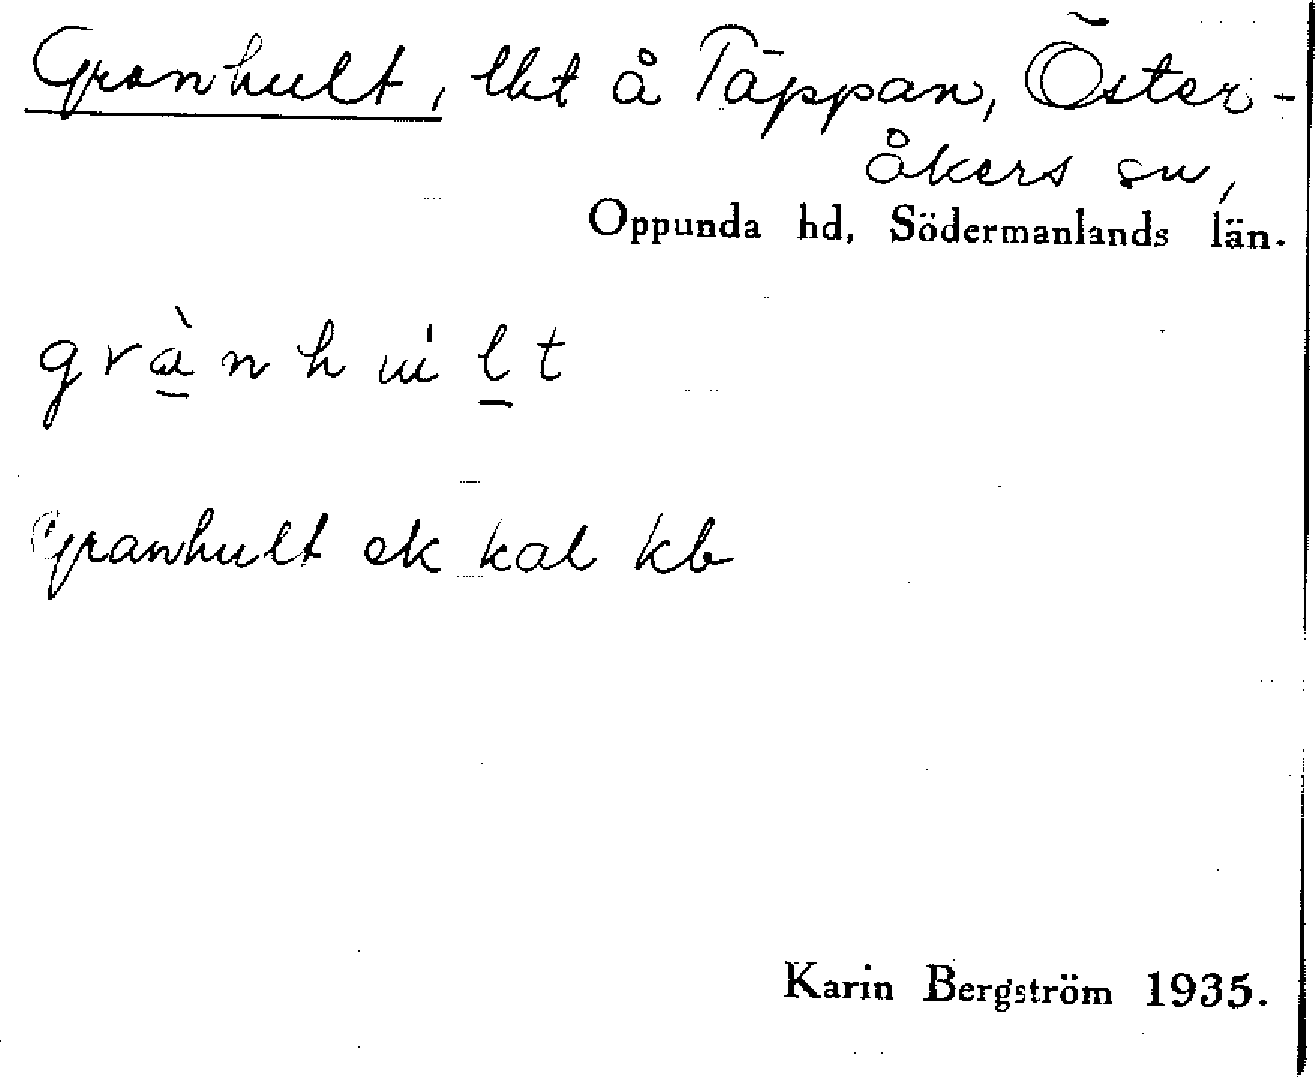 Granhult, lht å Täppan, Öster-
åkers sn,
Oppunda hd, Södermanlands län.
Granhult ek kal kb
Karin Bergström 1935.